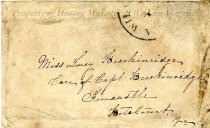 Property of History Museum
Miss Lucy Breckinridge
Care of Capt Breckinridge
Fincastle
Botetourt
Va